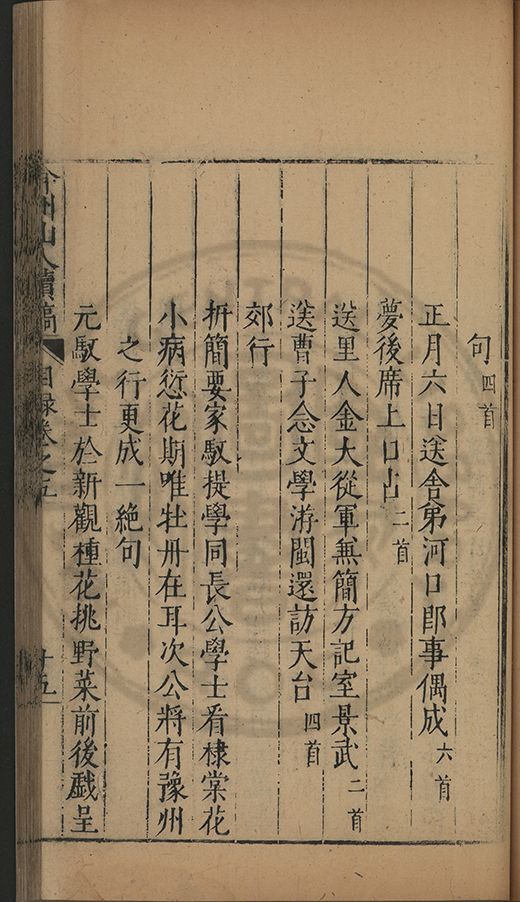 句四首
正月六日送舍弟河口卽事偶成六首
夢後席上口占二首
送里人金大從軍兼簡方記室景武二首
送曹子念文學游閩還訪天台四首
郊行
折簡要家馭提學同長公學士看棣棠花
小病愆花期唯牡丹在耳次公將有豫州
之行更成一絶句
元馭學士於新觀種花挑野菜前後戲呈
弇州山人續稿 目録卷之五 十五